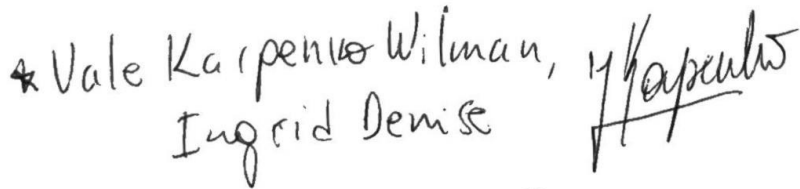 * Vale Karpenko Wilman,
Ingrid Denise